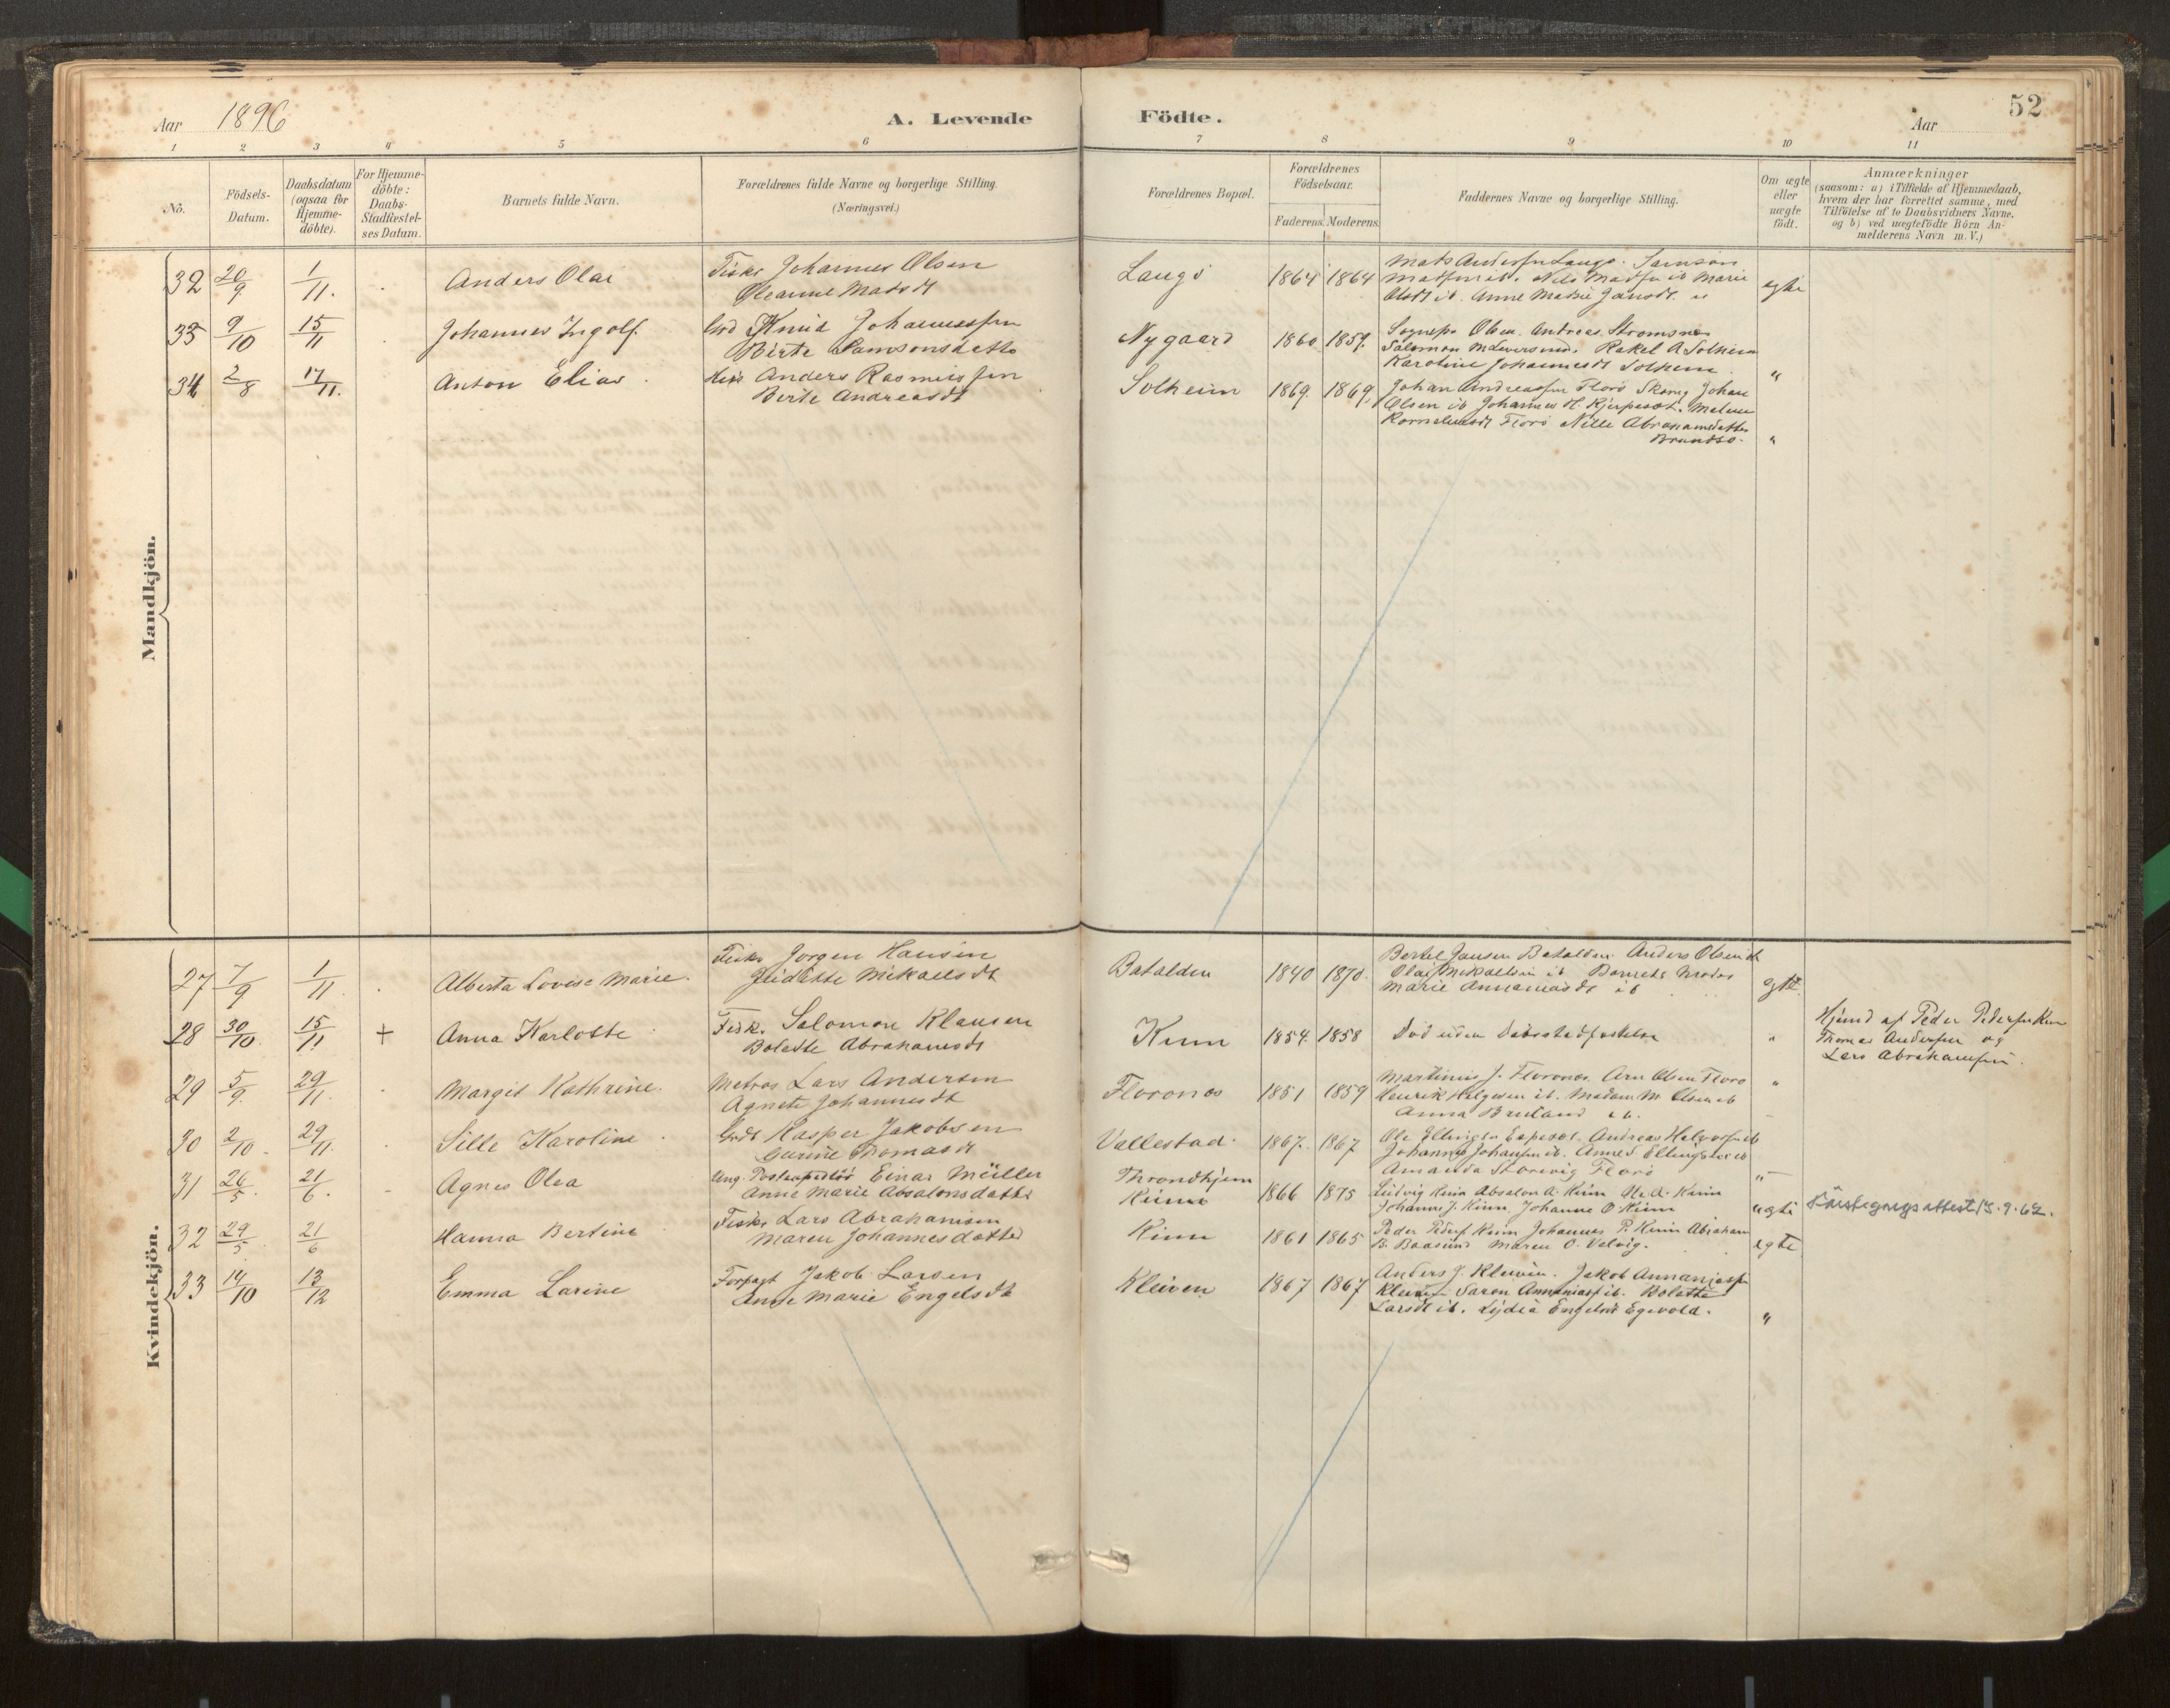 52
Aar 1896
A. Levende
Födte.
Aar
1 2 3 4 5 6 7 8 9 10 11
No.
Födsels-
Datum.
Daabsdatum
(ogsaa for
Hjemme-
döbte).
For Hjemme-
döbte:
Daabs-
Stadfæstel-
ses Datum.
Barnets fulde Navn.
Forældrenes fulde Navne og borgerlige Stilling.
(Næringsvei.)
Forældrenes Bopæl.
Forældrenes
Födselsaar.
Faderens. Moderens.
Faddernes Navne og borgerlige Stilling.
Om ægte
eller
uægte
født.
Anmærkninger
(saasom: a) i Tilfælde af Hjemmedaab,
hvem der har forrettet samme, med
Tilföielse af to Daabsvidners Navne,
og b) ved uægtefödte Börn An-
melderens Navn m. V.)
Mandkjön.
32 20/9 1/11. Anders Olai
Fisker Johannes Olsen
Oleanne Madsdt
Langö 1864 1864
Mats Andersen Langö. Samson
Madsen ib. Nils Madsen ib Marie
Olsdt ib. Anne Marie Jansdt. "
egte
33 9/10 15/11 Johannes Ingolf.
Knud Johannessen
Birte Samsonsdatter
Nygaard 1860 1859.
Sognepr Olsen. Andreas Strømsnes
Salomon Rakel A Solheim
Karoline Johannesdt Solheim.
"
34 2/8 17/11. Anton Elias.
Anders Rasmussen
Birte Andreasdt
Solheim 1869. 1869.
Johan Andreassen Florö Johan
Olsen ib Johannes H.
Kornelius dt Florö Nille Abrahamsdatter
Brandsö.
"
Kvindekjön.
27 7/9 1/11. Alberta Lovise Marie.
Fisker Jörgen Hansen
Mikaelsdt
Batalden 1840 1870.
Bertel Jansen Batalden Anders Olsen ib
Olai Mikaelsen ib Barnets Moder
Marie Annaniasdt ib
egte.
28 30/10. 15/11 + Anna Karlotte
Fisk. Salomon Klausen
Bolette Abrahamsdt
Kinn 1854. 1858
Död uden
"
Hjemd af Peder Pedersen Kinn
Thomas Andersen og
Lars Abrahamsen.
29 5/9. 29/11. Margit Kathrine.
Matros Lars Andersen
Agnete Johannesdt
Floronæs 1851 1859
Martinus J. Floronæs. Olsen Florö
Henrik Helgesen ib. Madam M. Olsen ib
Anna Bruland ib.
"
30 2/10. 29/11. Sille Karoline.
Kasper Jakobsen
Gurine Thomasdt
Vallestad. 1867. 1867
Ole Andreas ib
Johannes Johansen ib. Annes
Amanda Storevig Florö
"
31 26/5. 21/6. Agnes Olea
Ung. Einar Müller
Anne Marie Absalonsdatter
Throndhjem
Kinn
1866 1875
Ludvig Kinn Absalon A. Kinn Ole A. Kinn
Johannes J. Kinn, Johanne O. Kinn
uegte
15.9.62.
32 29/5 21/6 Hanna Bertine
Fisker Lars Abrahamsen
Maren Johannesdatter
Kinn 1861 1865
Peder Peders Kinn Johannes P. Kinn Abraham
B. Baasund Maren O. Velvig.
egte
33 14/10 13/12 Emma Larine
Forpagt Jakob Larsen
Anne Marie Engelsdt
Kleiven 1867 1867
Anders J. Kleiven. Jakob Annaniasen
Kleiven Saren Annaniasdt ib. Bolette
Larsdt ib. Lydia Engelsdt Egevold.
"